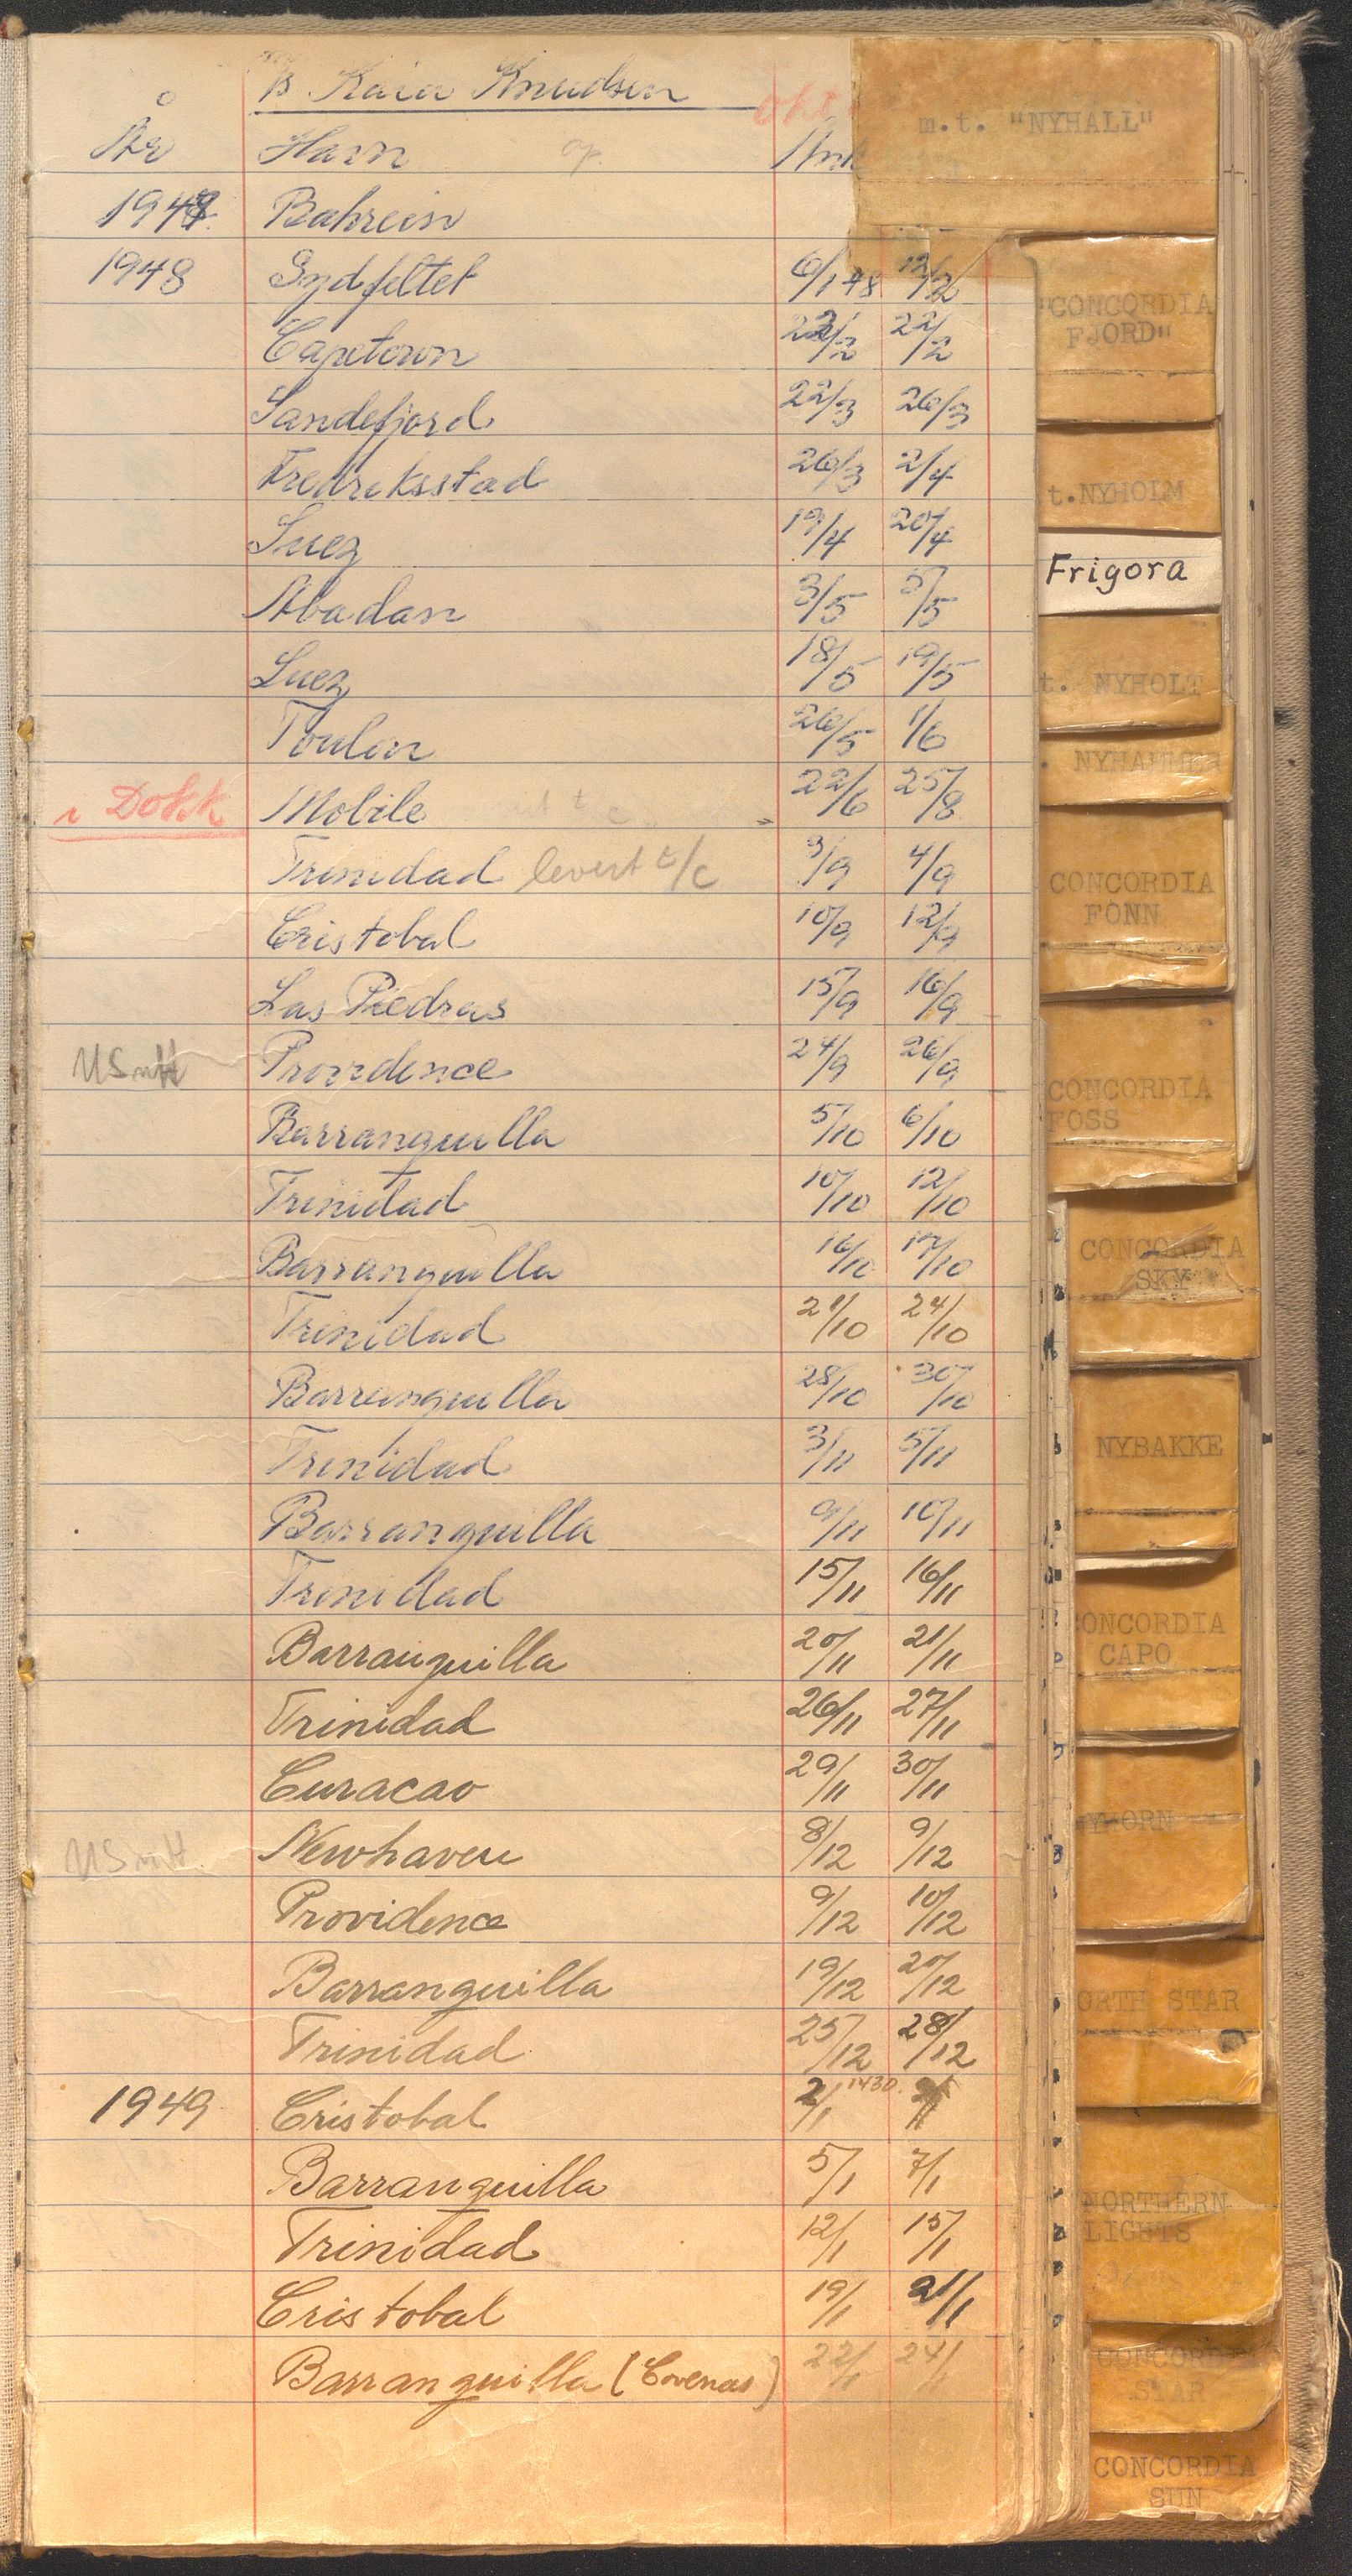 Kaia Knudsen
År Havn
1947 Bahrein
1948 Sydfeltet 6/1 48 12/2
Capetown 22/2 22/2
Sandefjord 22/3 26/3
Fredriksstad 26/3 2/4
Suez 19/4 20/4
Abadan 3/5 5/5
Suez 18/5 19/5
Toulon 26/5 1/6
i Dokk Mobile 22/6 25/8
Trinidad levert t/c 3/9 4/9
Cristobal 10/9 12/9
Las Piedras 15/9 16/9
USnH Providence 24/9 26/9
Barranquilla 5/10 6/10
Trinidad 10/10 12/10
Barranquilla 16/10 17/10
Trinidad 21/10 24/10
Barranquilla 28/10 30/10
Trinidad 3/11 5/11
Barranquilla 9/11 10/11
Trinidad 15/11 16/11
Barranquilla 20/11 21/11
Trinidad 26/11 27/11
Curacao 29/11 30/11
USnH Newhaven 8/12 9/12
Providence 9/12 10/12
Barranquilla 19/12 20/12
Trinidad 25/12 28/12
1949 Cristobal 2/1 1430
Barranquilla 5/1 7/1
Trinidad 12/1 15/1
Cristobal 19/1 21/1
Barranquilla (Covenas) 22/1 24/1
m.t. "NYHALL"
"CONCORDIA
FJORD"
t. NYHOLM
Frigora
t. NYHOLT
NYHAMMER
CONCORDIA
FONN
CONCORDIA
FOSS
CONCORDIA
SKY
NYBAKKE
ONCORDIA
CAPO
YHORN
ORTH STAR
NORTHERN
LIGHTS
CONCORDIA
STAR
CONCORDIA
SUN